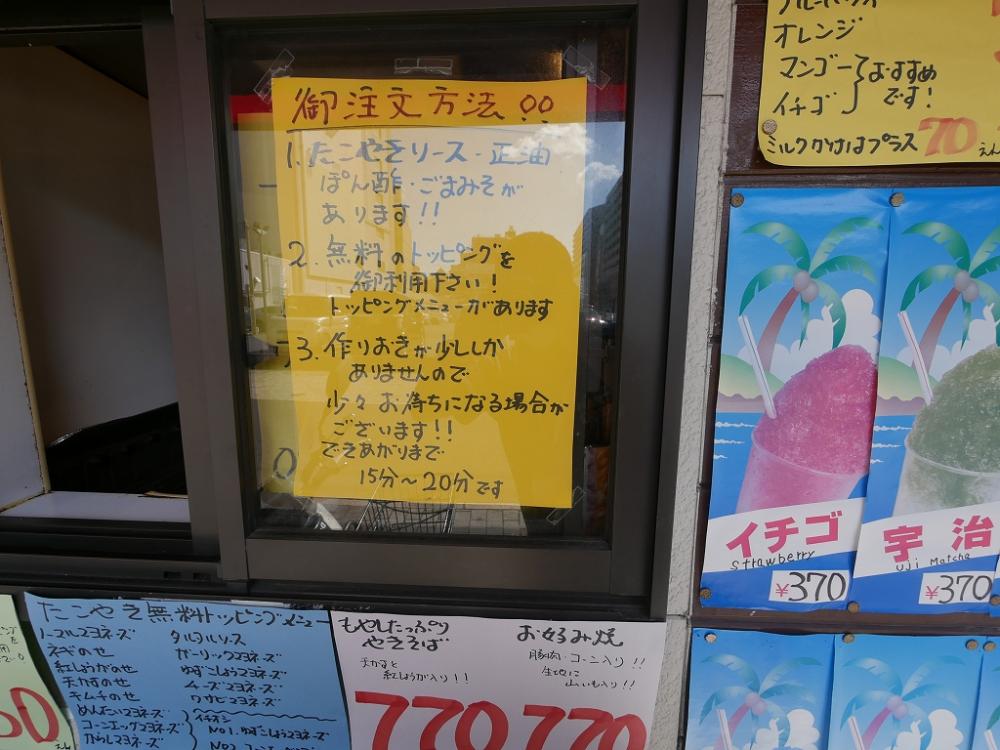 御注文方法!!
1. たこやきソース・正油
ぽん酢・ごまみそが
あります!!
2. 無料のトッピングを
御利用下さい!
トッピングメニューがあります
3. 作りおきが少ししか
ありませんので
少々お待ちになる場合が
ございます!!
できあがりまで
15分〜20分です
オレンジ
マンゴー
イチゴ
おすすめ
です!
ミルクかけはプラス70えん
イチゴ
strawberry
¥370
宇治
Uji Matcha
¥370
たこやき無料トッピングメニュー
ノーマルマヨネーズ
ネギのせ
紅しょうがのせ
天かすのせ
キムチのせ
めんたいマヨネーズ
コーンエッグマヨネーズ
からしマヨネーズ
タルタルソース
ガーリックマヨネーズ
ゆずこしょうマヨネーズ
チーズマヨネーズ
ワサビマヨネーズ
イチオシ
NO1. ゆずこしょうマヨネーズ
もやしたっぷり
やきそば
天かすと
紅しょうが入り!!
770
お好み焼
豚肉・コーン入り!!
生地に
山いも入り!!
770